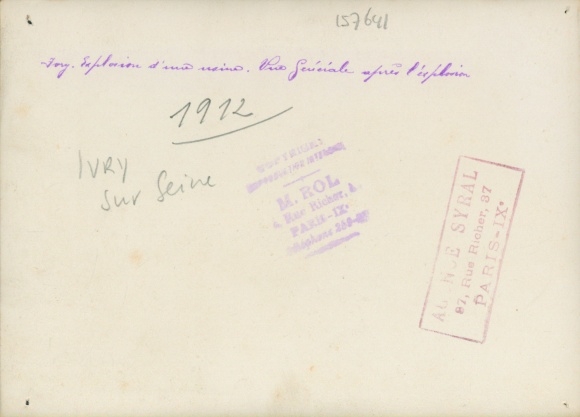 157641
Ivry. Explosion d'une usine. Vue Générale après l'explosion
1912
IVRY
sur Seine
COPYRIGHT
M. ROL
4, Rue Richer, 4
PARIS-IXe
Téléphone
AGENCE SYRAL
87, Rue Richer, 87
PARIS-IXe